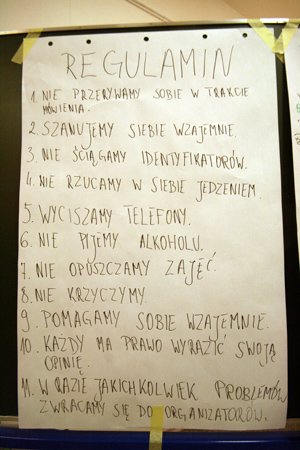 REGULAMIN
1. NIE PRZERYWAMY SOBIE W TRAKCIE
MÓWIENIA.
2. SZANUJEMY SIEBIE WZAJEMNIE.
3. NIE ŚCIĄGAMY IDENTYFIKATORÓW.
4. NIE RZUCAMY W SIEBIE JEDZENIEM.
5. WYCISZAMY TELEFONY.
6. NIE PIJEMY ALKOHOLU.
7. NIE OPUSZCZAMY ZAJĘĆ.
8. NIE KRZYCZYMY
9. POMAGAMY SOBIE WZAJEMNIE.
10. KAŻDY MA PRAWO WYRAZIĆ SWOJĄ
OPINIĘ.
11. W RAZIE JAKICHKOLWIEK PROBLEMÓW
ZWRACAMY SIĘ DO ORGANIZATORÓW.